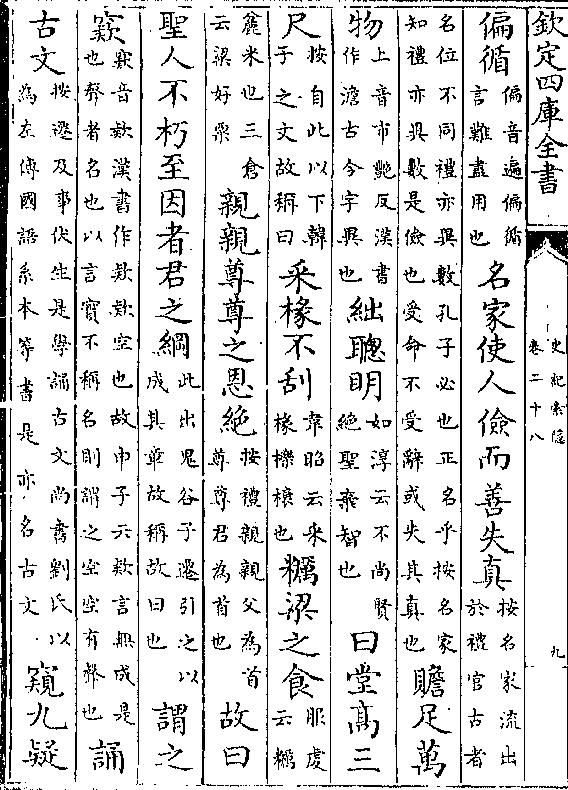 欽定四庫全書
史記索隱
卷二十八
九
偏循偏音遍偏循言難盡用也名家使人儉而善失真按名家流出於禮官古者
名位不同禮亦異數孔子必也正名乎按名家知禮亦異數是儉也受命不受辭或失其真也贍足萬
物上音市艷反漢書作澹古今字異也絀聰明如淳云不尚賢絕聖棄智也曰堂高三
尺按自此以下韓子之文故稱曰采椽不刮韋昭云采椽櫟榱也糲梁之食服虔云糲
麄米也三倉云梁好粟親親尊尊之恩絕按禮親親父為首尊尊君為首也故曰
聖人不朽至因者君之綱此出鬼谷子遷引之以成其章故稱故曰也謂之
窾窾音欵漢書作欵欵空也故申子云欵言無成是也聲者名也以言實不稱名則謂之空空有聲也誦
古文按遷及事伏生是學誦古文尚書劉氏以為左傳國語系本等書是亦名古文窺九疑